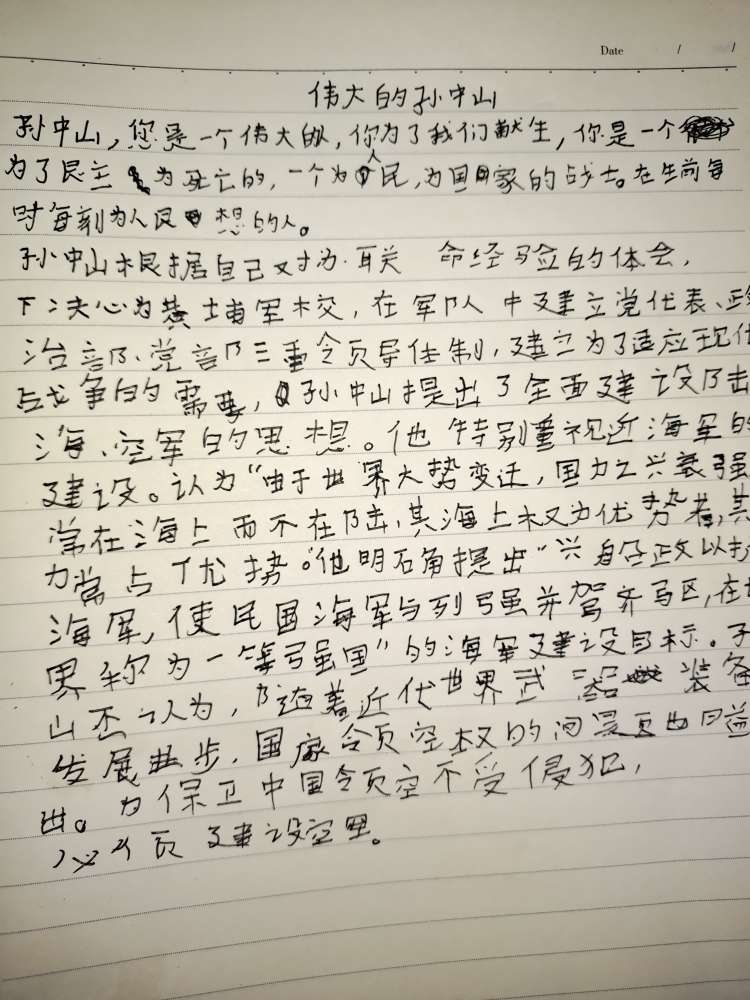 Date / /
伟大的孙中山
孙中山,您是一个伟大的人,你为了我们献生,你是一个
为了民主 为死亡的,一个为人民,为国家的战士。在生前每
时每刻为人民 想的人。
孙中山根据自己对为. 命经验的体会,
下决心为黄埔军校,在军队中建立党代表、政
治部、党部三重领导住制,建立为了适应现代
战争的需要,孙中山提出了全面建设陆
海、空军的思想。他特别重视近海军的
建设。认为“由于世界大势变迁,国力之兴衰强
常在海上而不在陆,其海上权为优势者,其
力常占优势。”他明确提出“兴 政以扩
海军,使民国海军与列强并驾齐区,在世
界称为一等强国”的海军建设目标。孙
山还认为,随着近代世界武器 装备
发展进步,国家领空权的问是页出日益
出。为保卫中国领空不受侵犯,
必须建设空军。